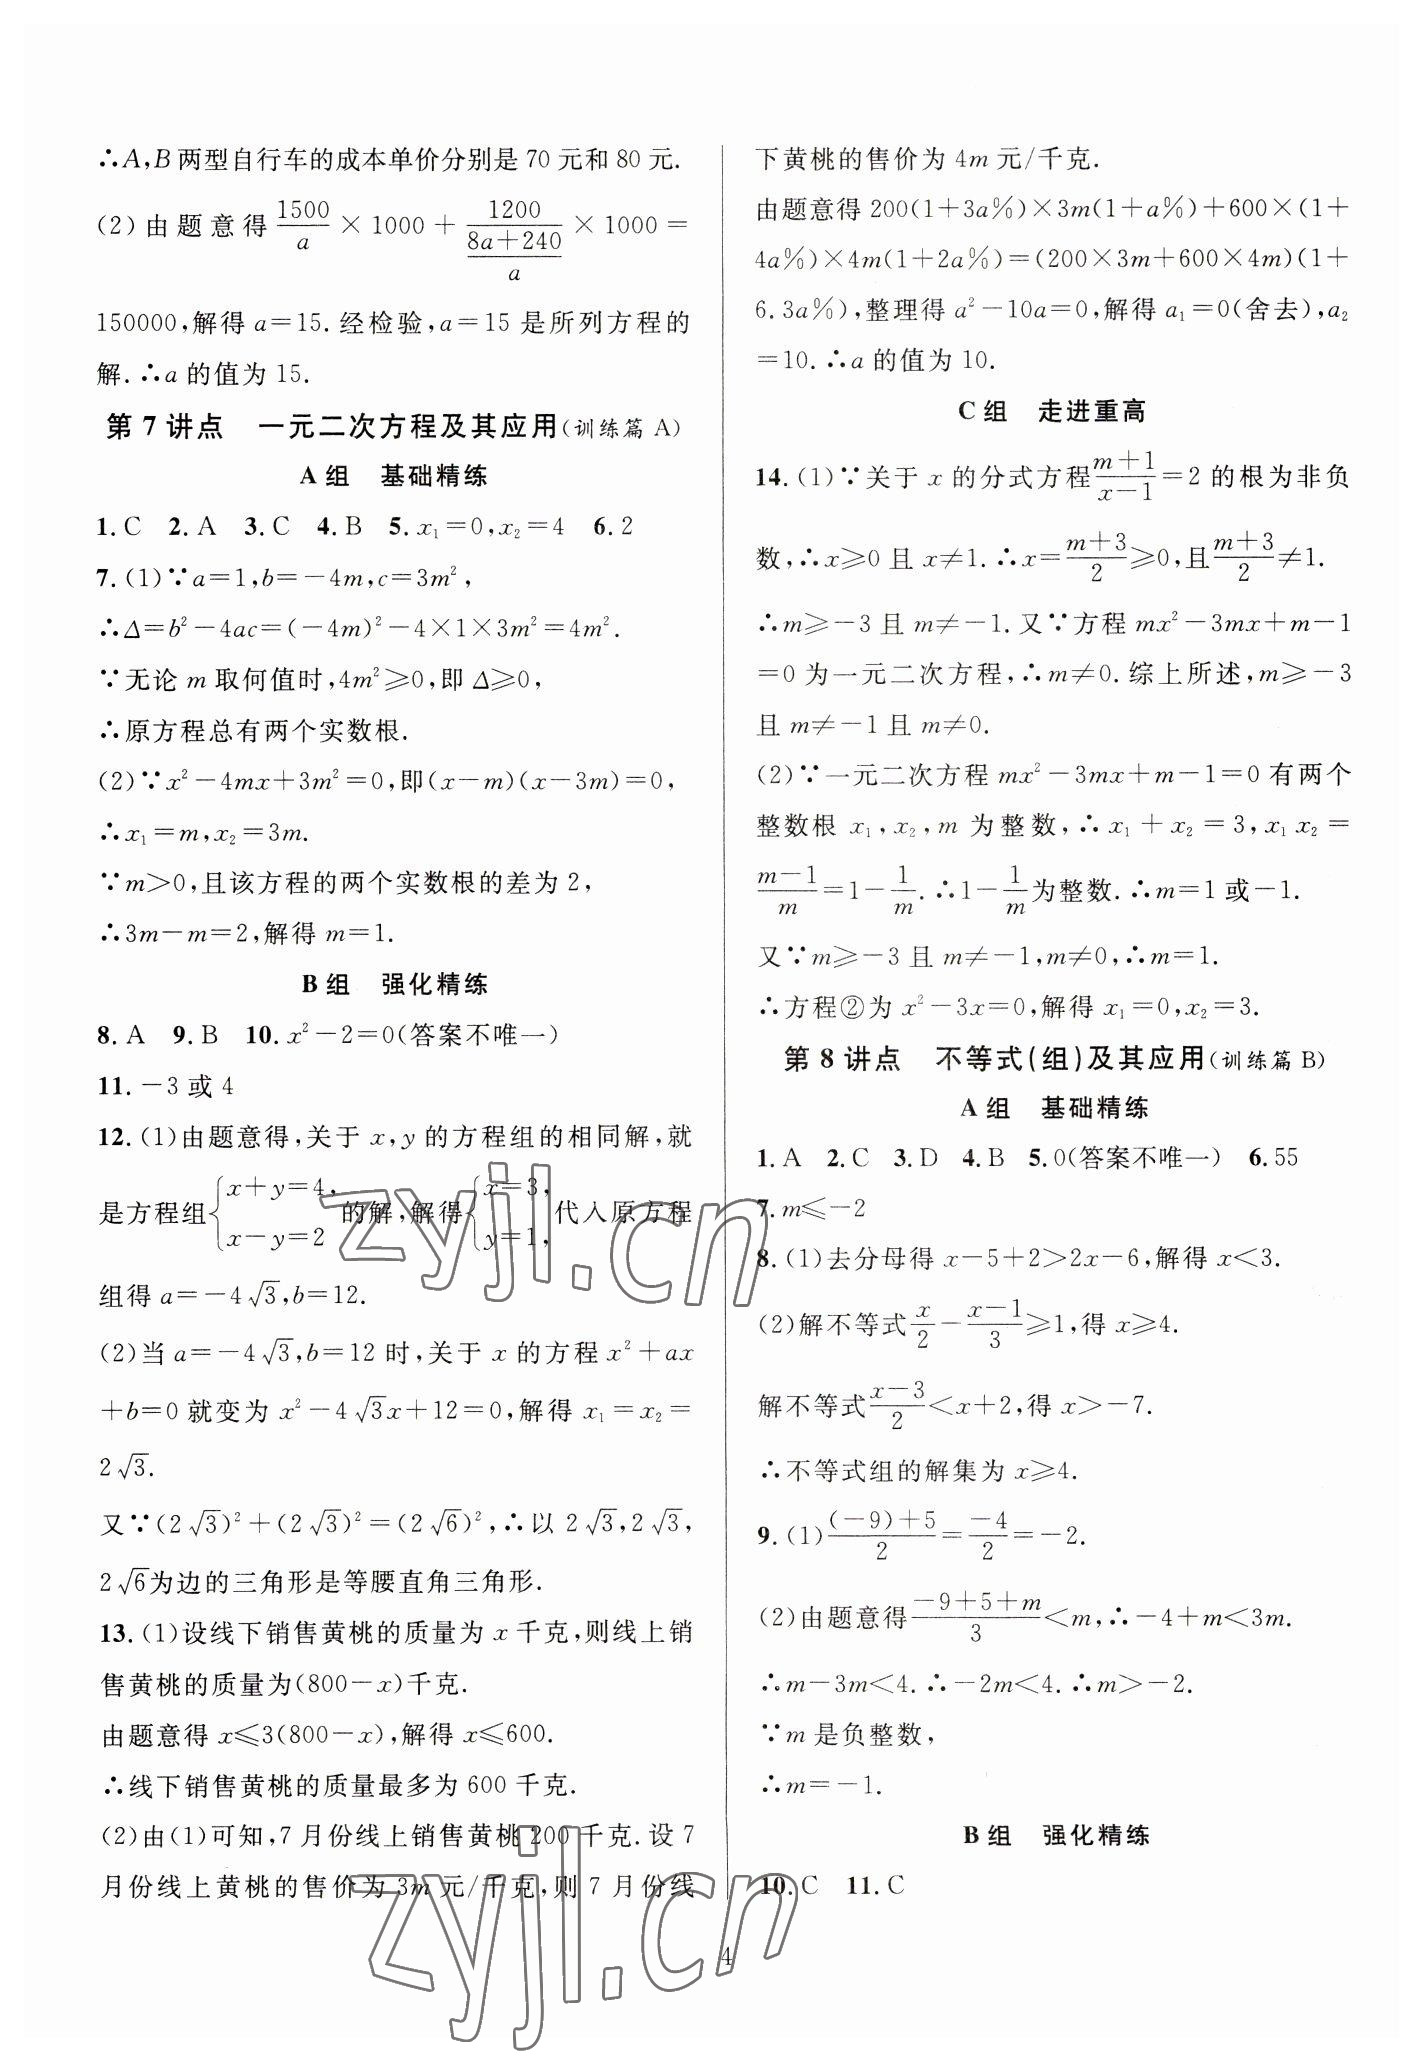 ∴A,B两型自行车的成本单价分别是70元和80元.
(2)由题意得1500/a×1000+1200/((8a+240)/a)×1000=
150000,解得a=15.经检验,a=15是所列方程的
解.∴a的值为15.
第7讲点 一元二次方程及其应用(训练篇A)
A组 基础精练
1.C 2.A 3.C 4.B 5.x₁=0,x₂=4 6.2
7.(1)∵a=1,b=-4m,c=3m²,
∴Δ=b²-4ac=(-4m)²-4×1×3m²=4m².
∵无论m取何值时,4m²≥0,即Δ≥0,
∴原方程总有两个实数根.
(2)∵x²-4mx+3m²=0,即(x-m)(x-3m)=0,
∴x₁=m,x₂=3m.
∵m>0,且该方程的两个实数根的差为2,
∴3m-m=2,解得m=1.
B组 强化精练
8.A 9.B 10.x²-2=0(答案不唯一)
11.-3或4
12.(1)由题意得,关于x,y的方程组的相同解,就
是方程组{x+y=4, x-y=2的解,解得{x=3, y=1,代入原方程
组得a=-4√3,b=12.
(2)当a=-4√3,b=12时,关于x的方程x²+ax
+b=0就变为x²-4√3x+12=0,解得x₁=x₂=
2√3.
又∵(2√3)²+(2√3)²=(2√6)²,∴以2√3,2√3,
2√6为边的三角形是等腰直角三角形.
13.(1)设线下销售黄桃的质量为x千克,则线上销
售黄桃的质量为(800-x)千克.
由题意得x≤3(800-x),解得x≤600.
∴线下销售黄桃的质量最多为600千克.
(2)由(1)可知,7月份线上销售黄桃200千克.设7
月份线上黄桃的售价为3m元/千克,则7月份线
下黄桃的售价为4m元/千克.
由题意得200(1+3a%)×3m(1+a%)+600×(1+
4a%)×4m(1+2a%)=(200×3m+600×4m)(1+
6.3a%),整理得a²-10a=0,解得a₁=0(舍去),a₂
=10.∴a的值为10.
C组 走进重高
14.(1)∵关于x的分式方程(m+1)/(x-1)=2的根为非负
数,∴x≥0且x≠1.∴x=(m+3)/2≥0,且(m+3)/2≠1.
∴m≥-3且m≠-1.又∵方程mx²-3mx+m-1
=0为一元二次方程,∴m≠0.综上所述,m≥-3
且m≠-1且m≠0.
(2)∵一元二次方程mx²-3mx+m-1=0有两个
整数根x₁,x₂,m为整数,∴x₁+x₂=3,x₁x₂=
(m-1)/m=1-1/m.∴1-1/m为整数.∴m=1或-1.
又∵m≥-3且m≠-1,m≠0,∴m=1.
∴方程②为x²-3x=0,解得x₁=0,x₂=3.
第8讲点 不等式(组)及其应用(训练篇B)
A组 基础精练
1.A 2.C 3.D 4.B 5.0(答案不唯一) 6.55
7.m≤-2
8.(1)去分母得x-5+2>2x-6,解得x<3.
(2)解不等式x/2-(x-1)/3≥1,得x≥4.
解不等式(x-3)/2<x+2,得x>-7.
∴不等式组的解集为x≥4.
9.(1)((-9)+5)/2=-4/2=-2.
(2)由题意得(-9+5+m)/3<m,∴-4+m<3m.
∴m-3m<4.∴-2m<4.∴m>-2.
∵m是负整数,
∴m=-1.
B组 强化精练
10.C 11.C
4
zyjl.cn
zyjl.cn